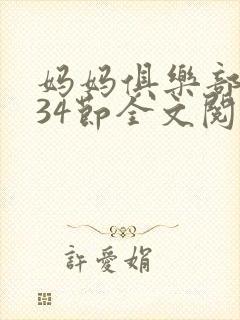 妈妈俱樂部
34節全文閱
許愛娟